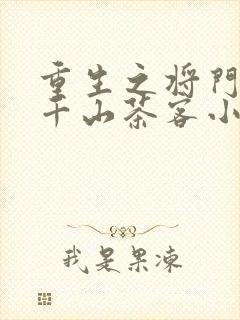 重生之将門
千山茶客小
我是果凍